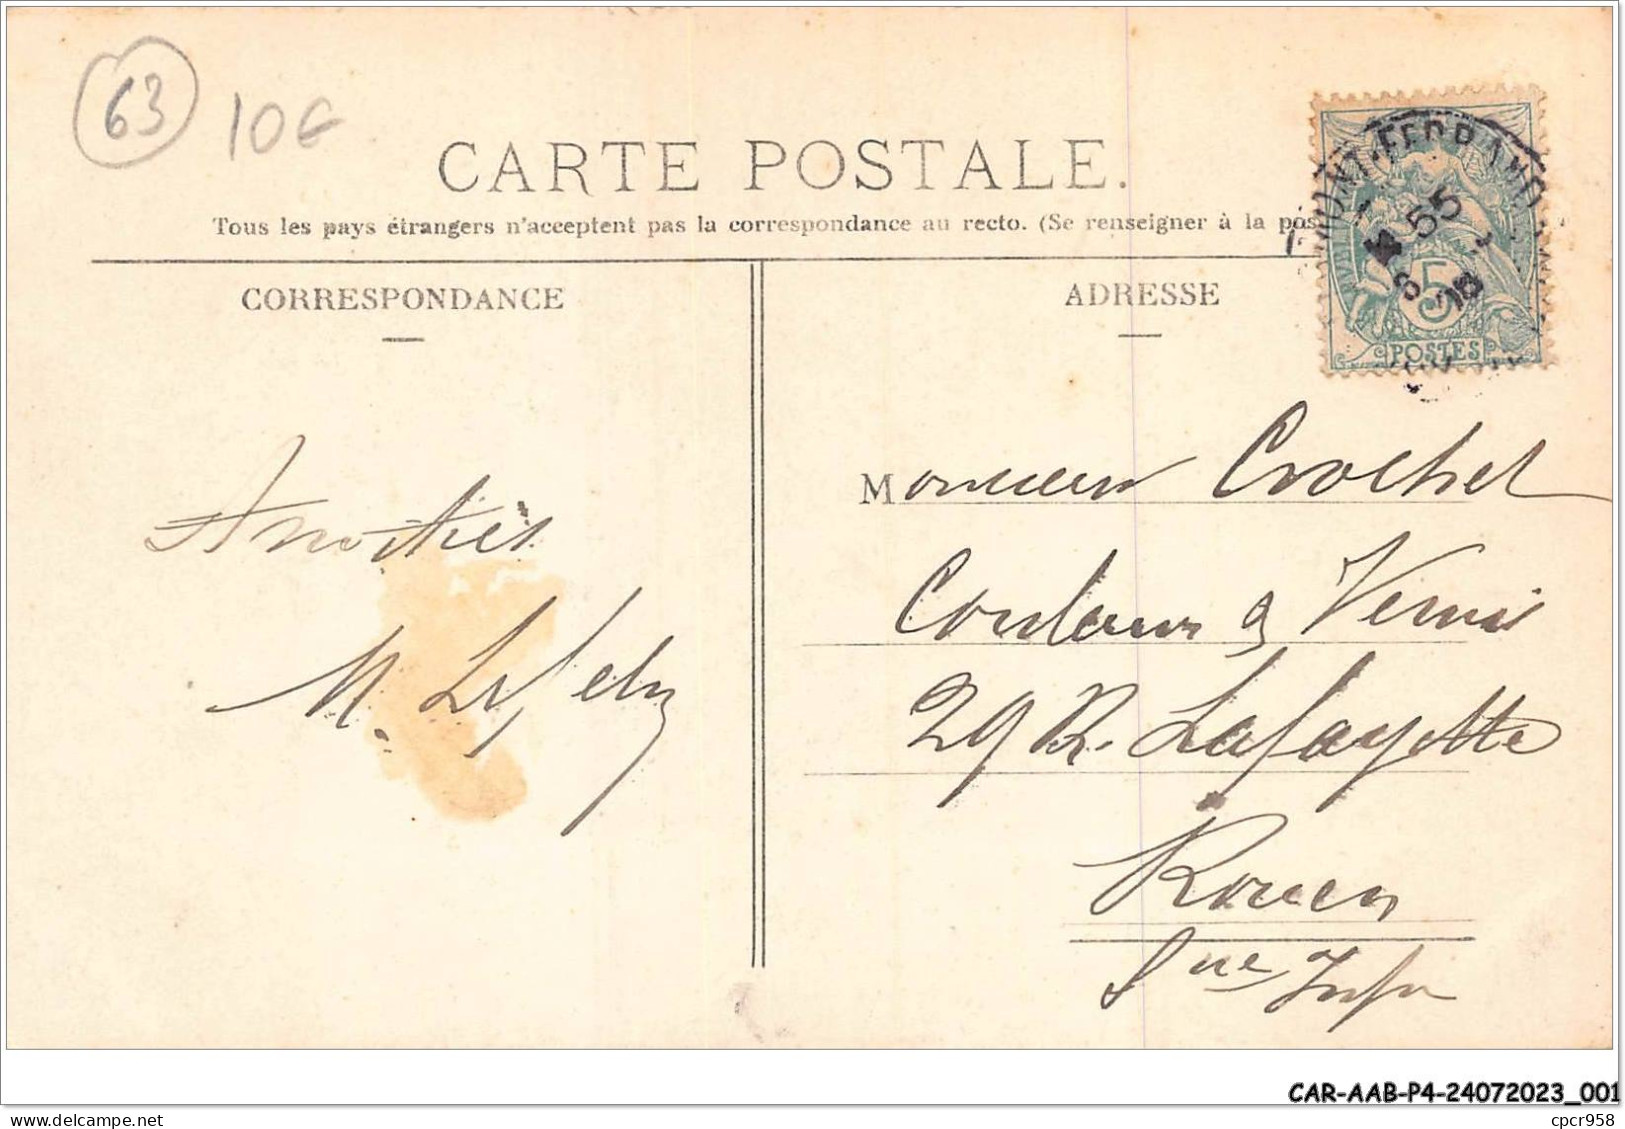 63
10€
CARTE POSTALE.
Tous les pays étrangers n'acceptent pas la correspondance au recto. (Se renseigner à la pos
CORRESPONDANCE
ADRESSE
MONT-FERRAND
55
8
5
POSTES
Amitiés
M. Lefeb
Monsieur Crochet
Couleurs & Vernis
29 R. Lafayette
Rouen
Sne Infre
CAR-AAB-P4-24072023_001
cpcr958